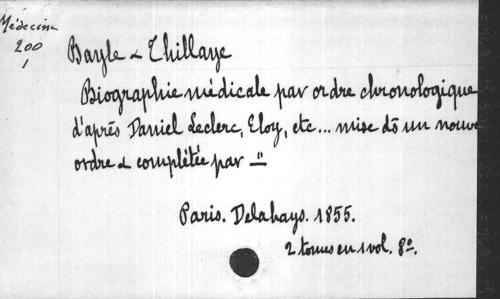 Médecine
200
1
Bayle & Thillaye
Biographie médicale par ordre chronologique
d'après Daniel Leclerc, Eloy, etc... mise ds un nouve
ordre & complétée par —"
Paris. Delahays. 1855.
2 tomes en 1 vol. 8°.